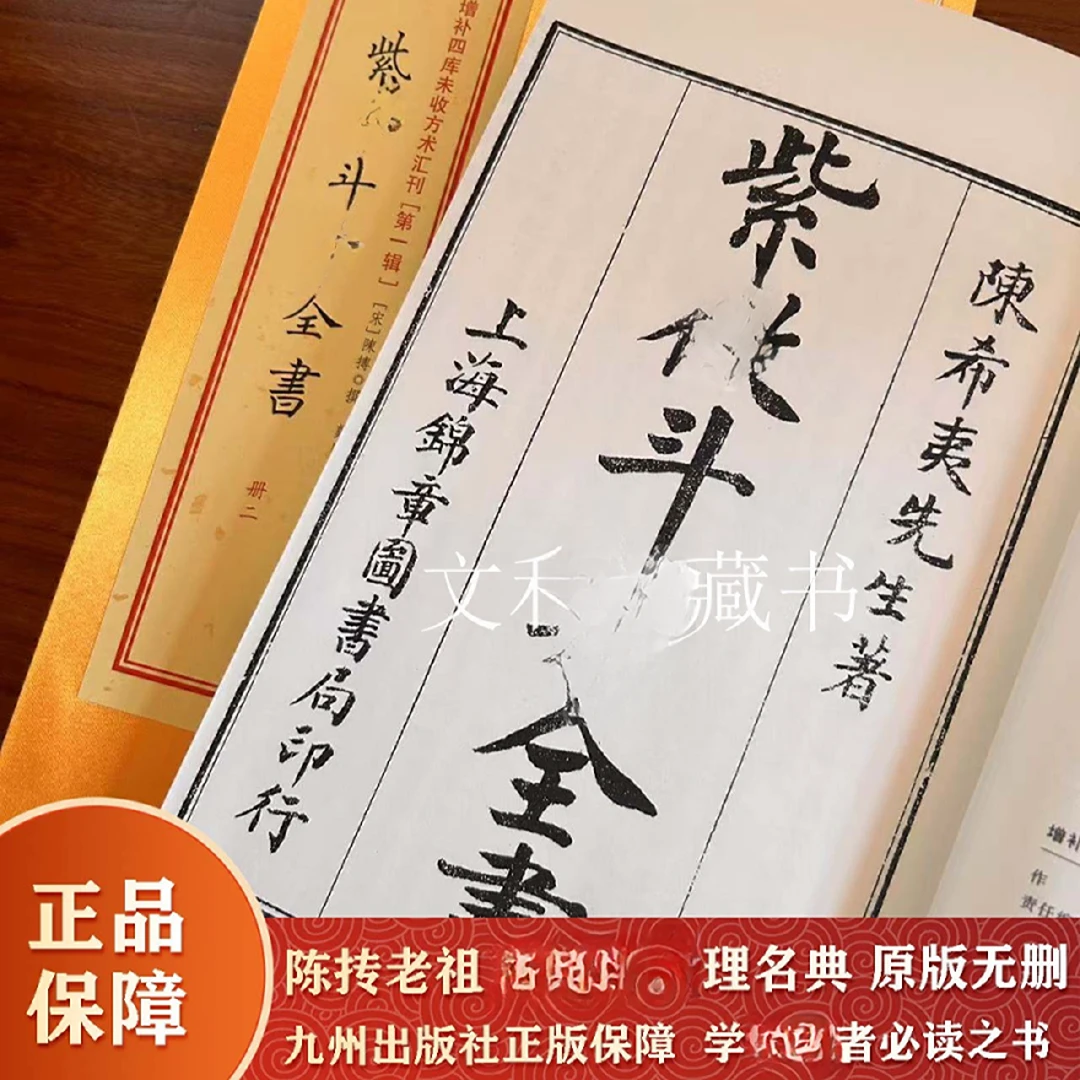 增补四库未收方术汇刊［第一辑］
紫
斗
全書
［宋］陳摶◎撰
册二
陳希夷先生著
紫
斗
全書
上海錦章圖書局印行
文禾
藏书
增补
作
责任编
正品
保障
陈抟老祖
理名典 原版无删
九州出版社正版保障 学
者必读之书